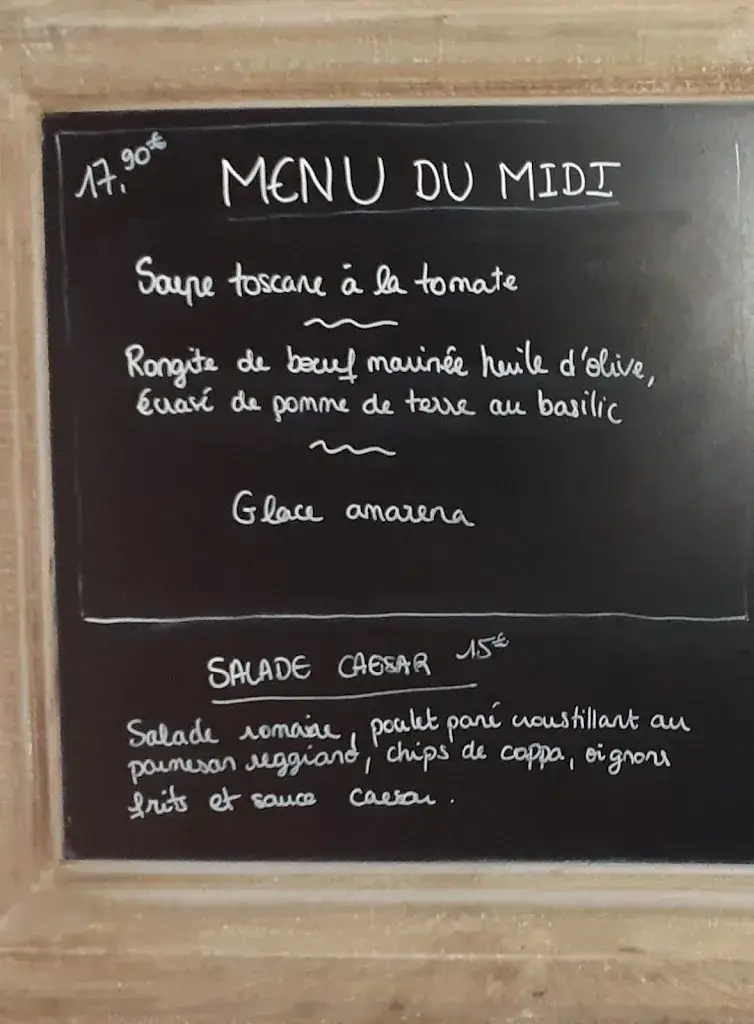 17.90€
MENU DU MIDI
Soupe toscane à la tomate
Rongite de bœuf marinée huile d'olive,
écrasé de pomme de terre au basilic
Glace amarena
SALADE CAESAR 15€
Salade romaine, poulet pané croustillant au
parmesan reggiano, chips de coppa, oignons
frits et sauce caesar.